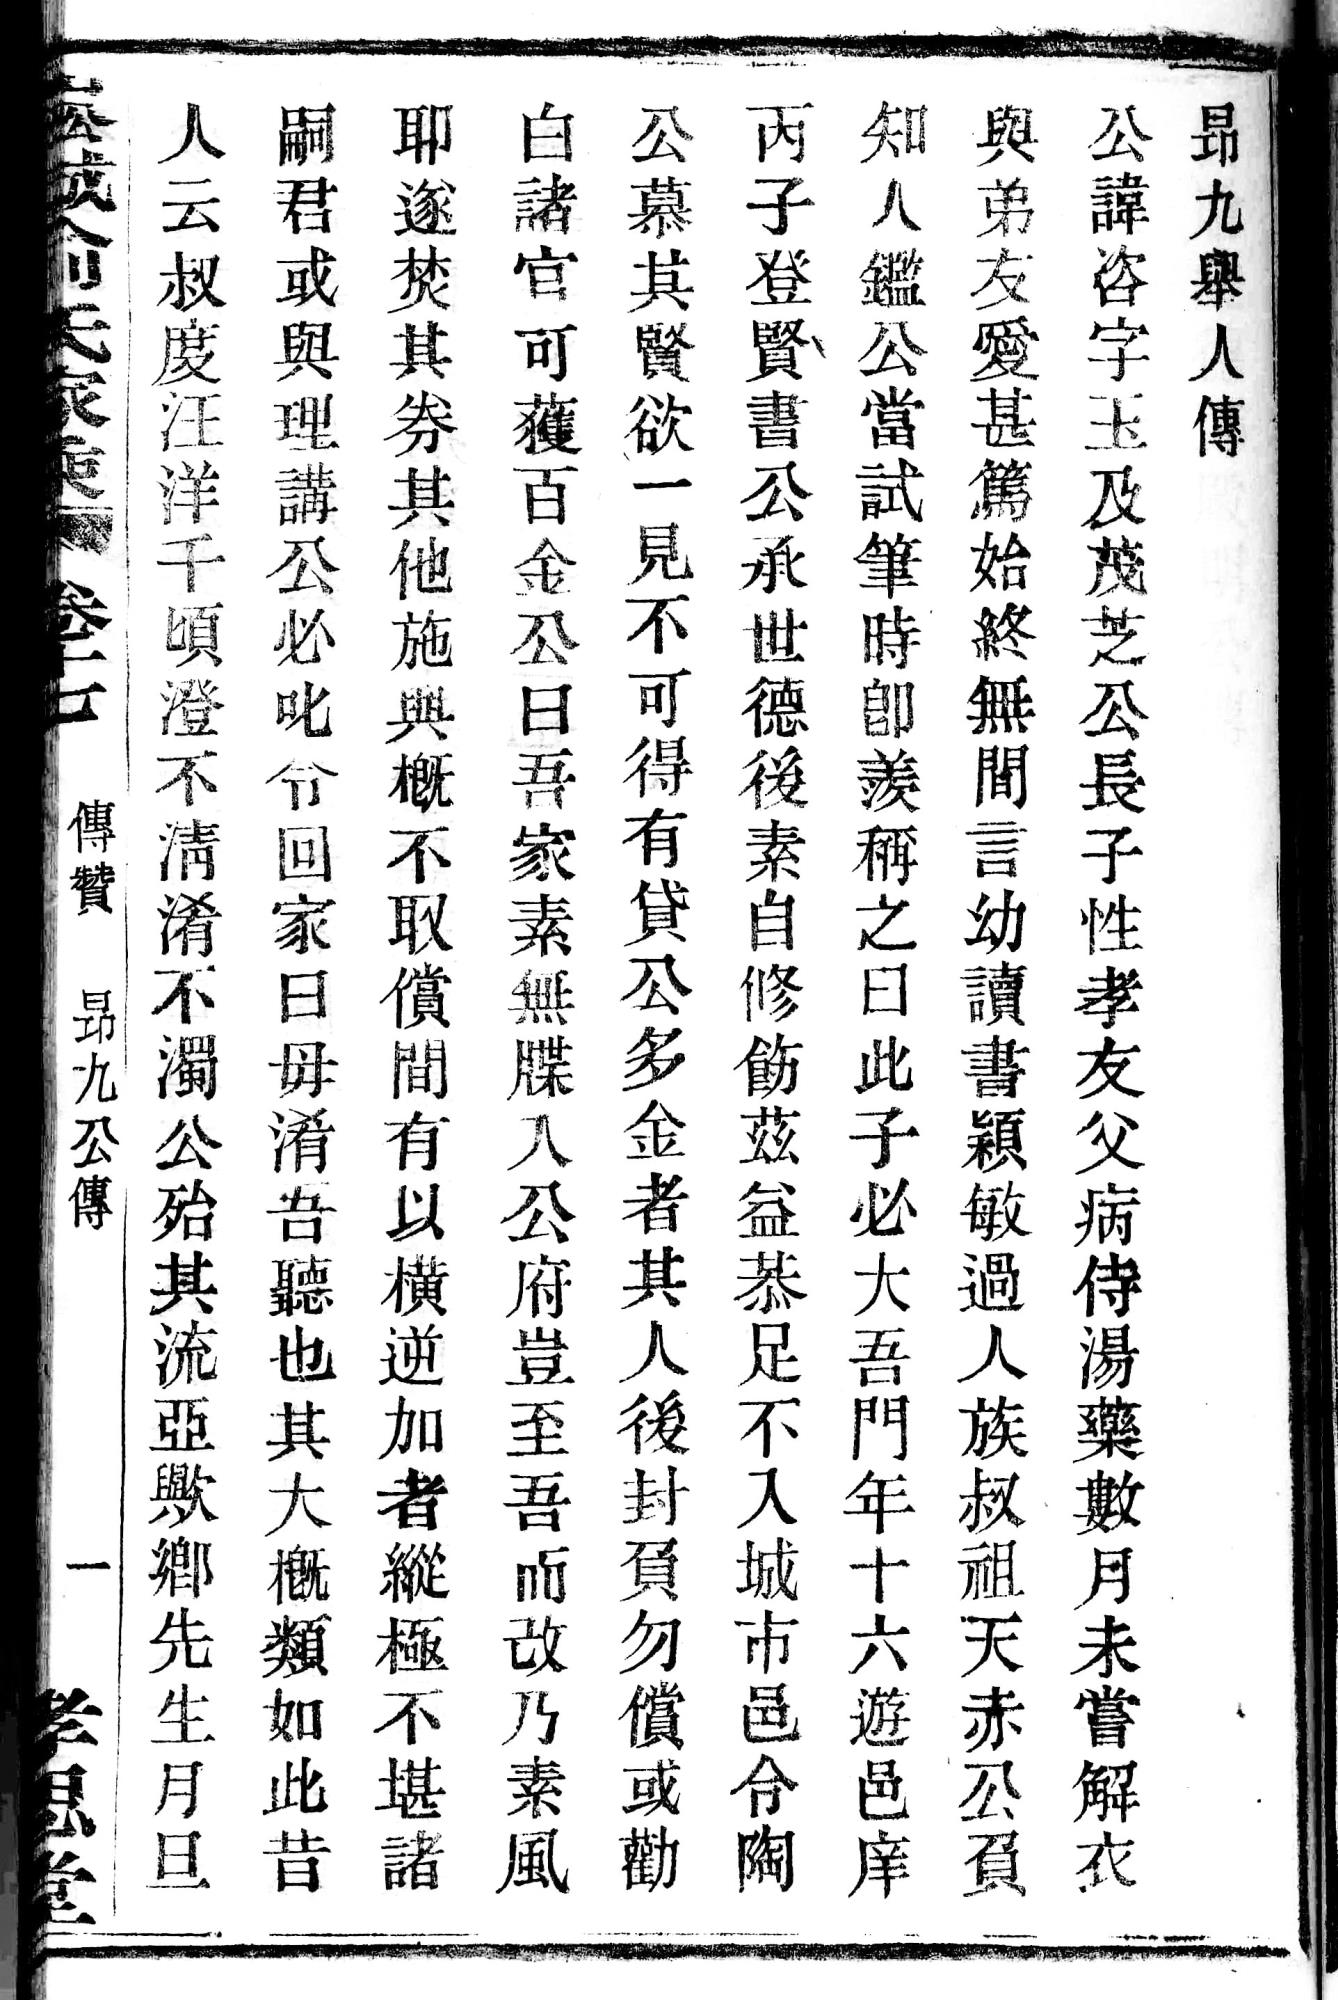 昻九舉人傳
公諱咨字玉及茂芝公長子性孝友父病侍湯藥數月未嘗解衣
與弟友愛甚篤始終無間言幼讀書穎敏過人族叔祖天赤公負
知人鑑公當試筆時卽羨稱之曰此子必大吾門年十六遊邑庠
丙子登賢書公承世德後素自修飭茲益恭足不入城市邑令陶
公慕其賢欲一見不可得有貸公多金者其人後封負勿償或勸
白諸官可獲百金公曰吾家素無牒入公府豈至吾而改乃素風
耶遂焚其券其他施與槪不取償間有以橫逆加者縱極不堪諸
嗣君或與理講公必叱令回家曰毋淆吾聽也其大槪類如此昔
人云叔度汪洋千頃澄不淸淆不濁公殆其流亞歟鄉先生月旦
氏家乘 卷十七 傳贊 昻九公傳 一 孝思堂